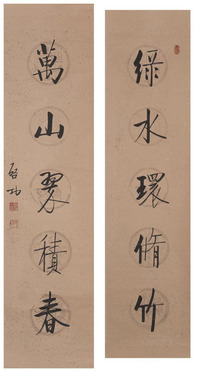 綠水環脩竹
萬山翠積春
啓功